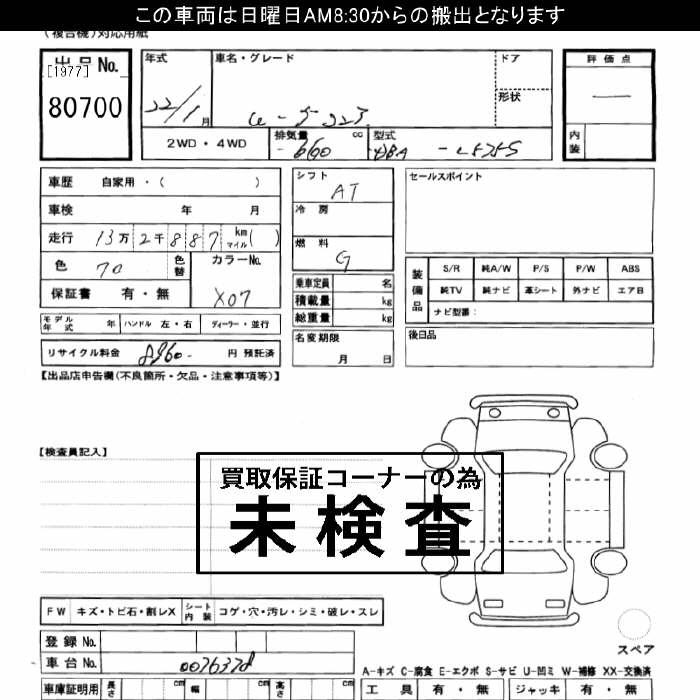 この車両は日曜日AM8:30からの搬出となります
(複合機)対応用紙
出品No.
[1977]
80700
年式
22/1月
車名・グレード
ドア
形状
2WD・4WD
排気量
660 cc
型式
DBA-L575S
評価点
—
内装
車歴 自家用・( )
車検 年 月
走行 13万2千887 km マイル ( )
色 70
色替
カラーNo.
X07
保証書 有・無
シフト
AT
冷房
燃料
G
セールスポイント
装備品
S/R 純A/W P/S P/W ABS
純TV 純ナビ 革シート 外ナビ エアB
ナビ型番:
乗車定員 名
積載量 kg
総重量 kg
モデル年式 年 ハンドル 左・右 ディーラー・並行
名変期限
月 日
後日品
リサイクル料金 8960- 円 預託済
【出品店申告欄(不良箇所・欠品・注意事項等)】
【検査員記入】
買取保証コーナーの為
未検査
FW キズ・トビ石・割レX シート内装 コゲ・穴・汚レ・シミ・破レ・スレ
スペア
登録No.
車台No. 0076378
A-キズ C-腐食 E-エクボ S-サビ U-凹ミ W-補修 XX-交換済
車庫証明用 長さ cm 幅 cm 高さ cm
工具 有・無 ジャッキ 有・無